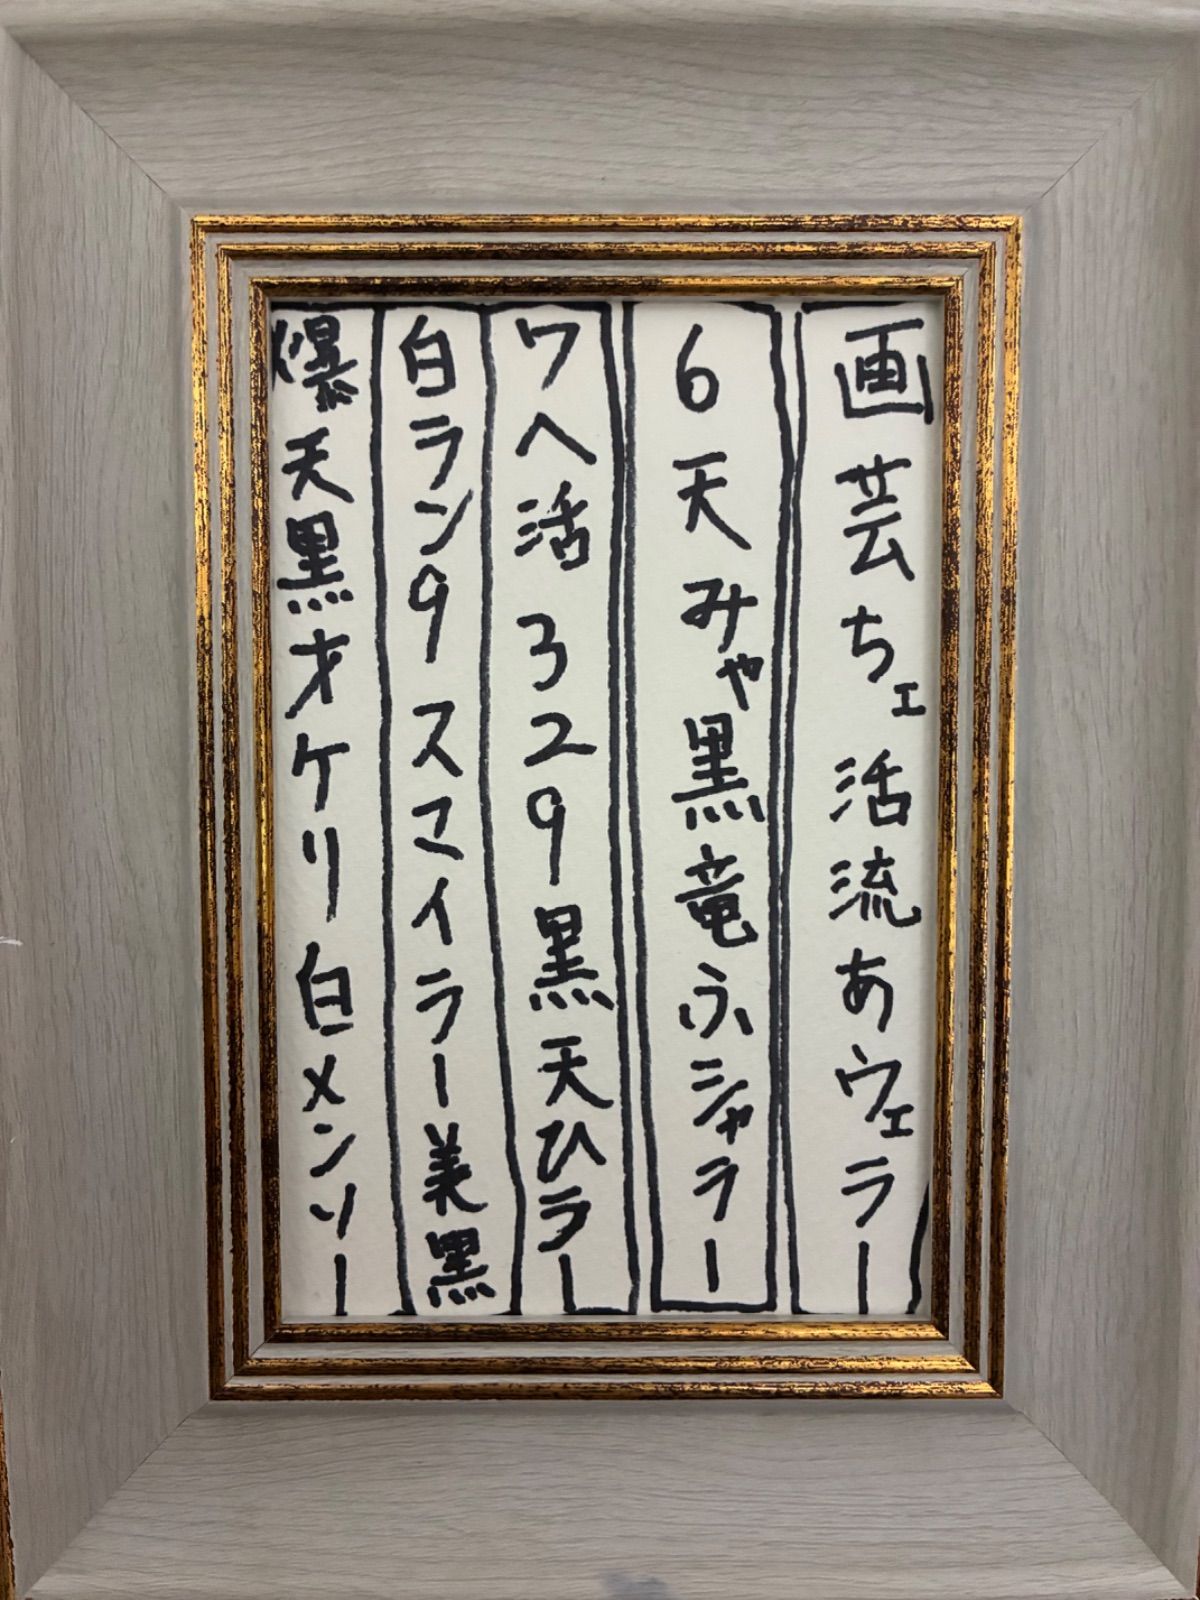 画芸ちェ活流あウェラー
6天みゃ黒竜ふシャラー
ワヘ活329黒天ひラー
白ラン9スマイラー美黒
爆天黒才ケリ白メンソー